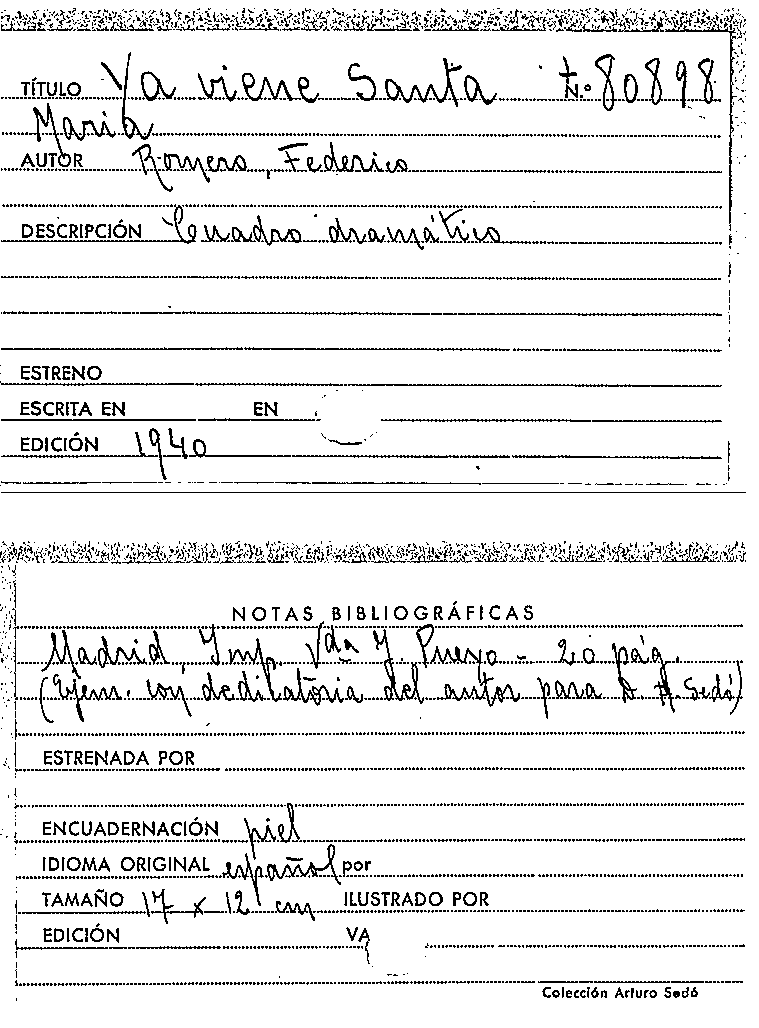 TÍTULO Ya viene Santa N.º 80898
Maria
AUTOR Romero, Federico
DESCRIPCIÓN Cuadro dramático
ESTRENO
ESCRITA EN EN
EDICIÓN 1940
NOTAS BIBLIOGRÁFICAS
Madrid, Imp. Vda J. Pueyo - 20 pág.
(Ejem. con dedicatoria del autor para D. A. Sedó)
ESTRENADA POR
ENCUADERNACIÓN piel
IDIOMA ORIGINAL español por
TAMAÑO 17 x 12 cm ILUSTRADO POR
EDICIÓN VA
Colección Arturo Sedó